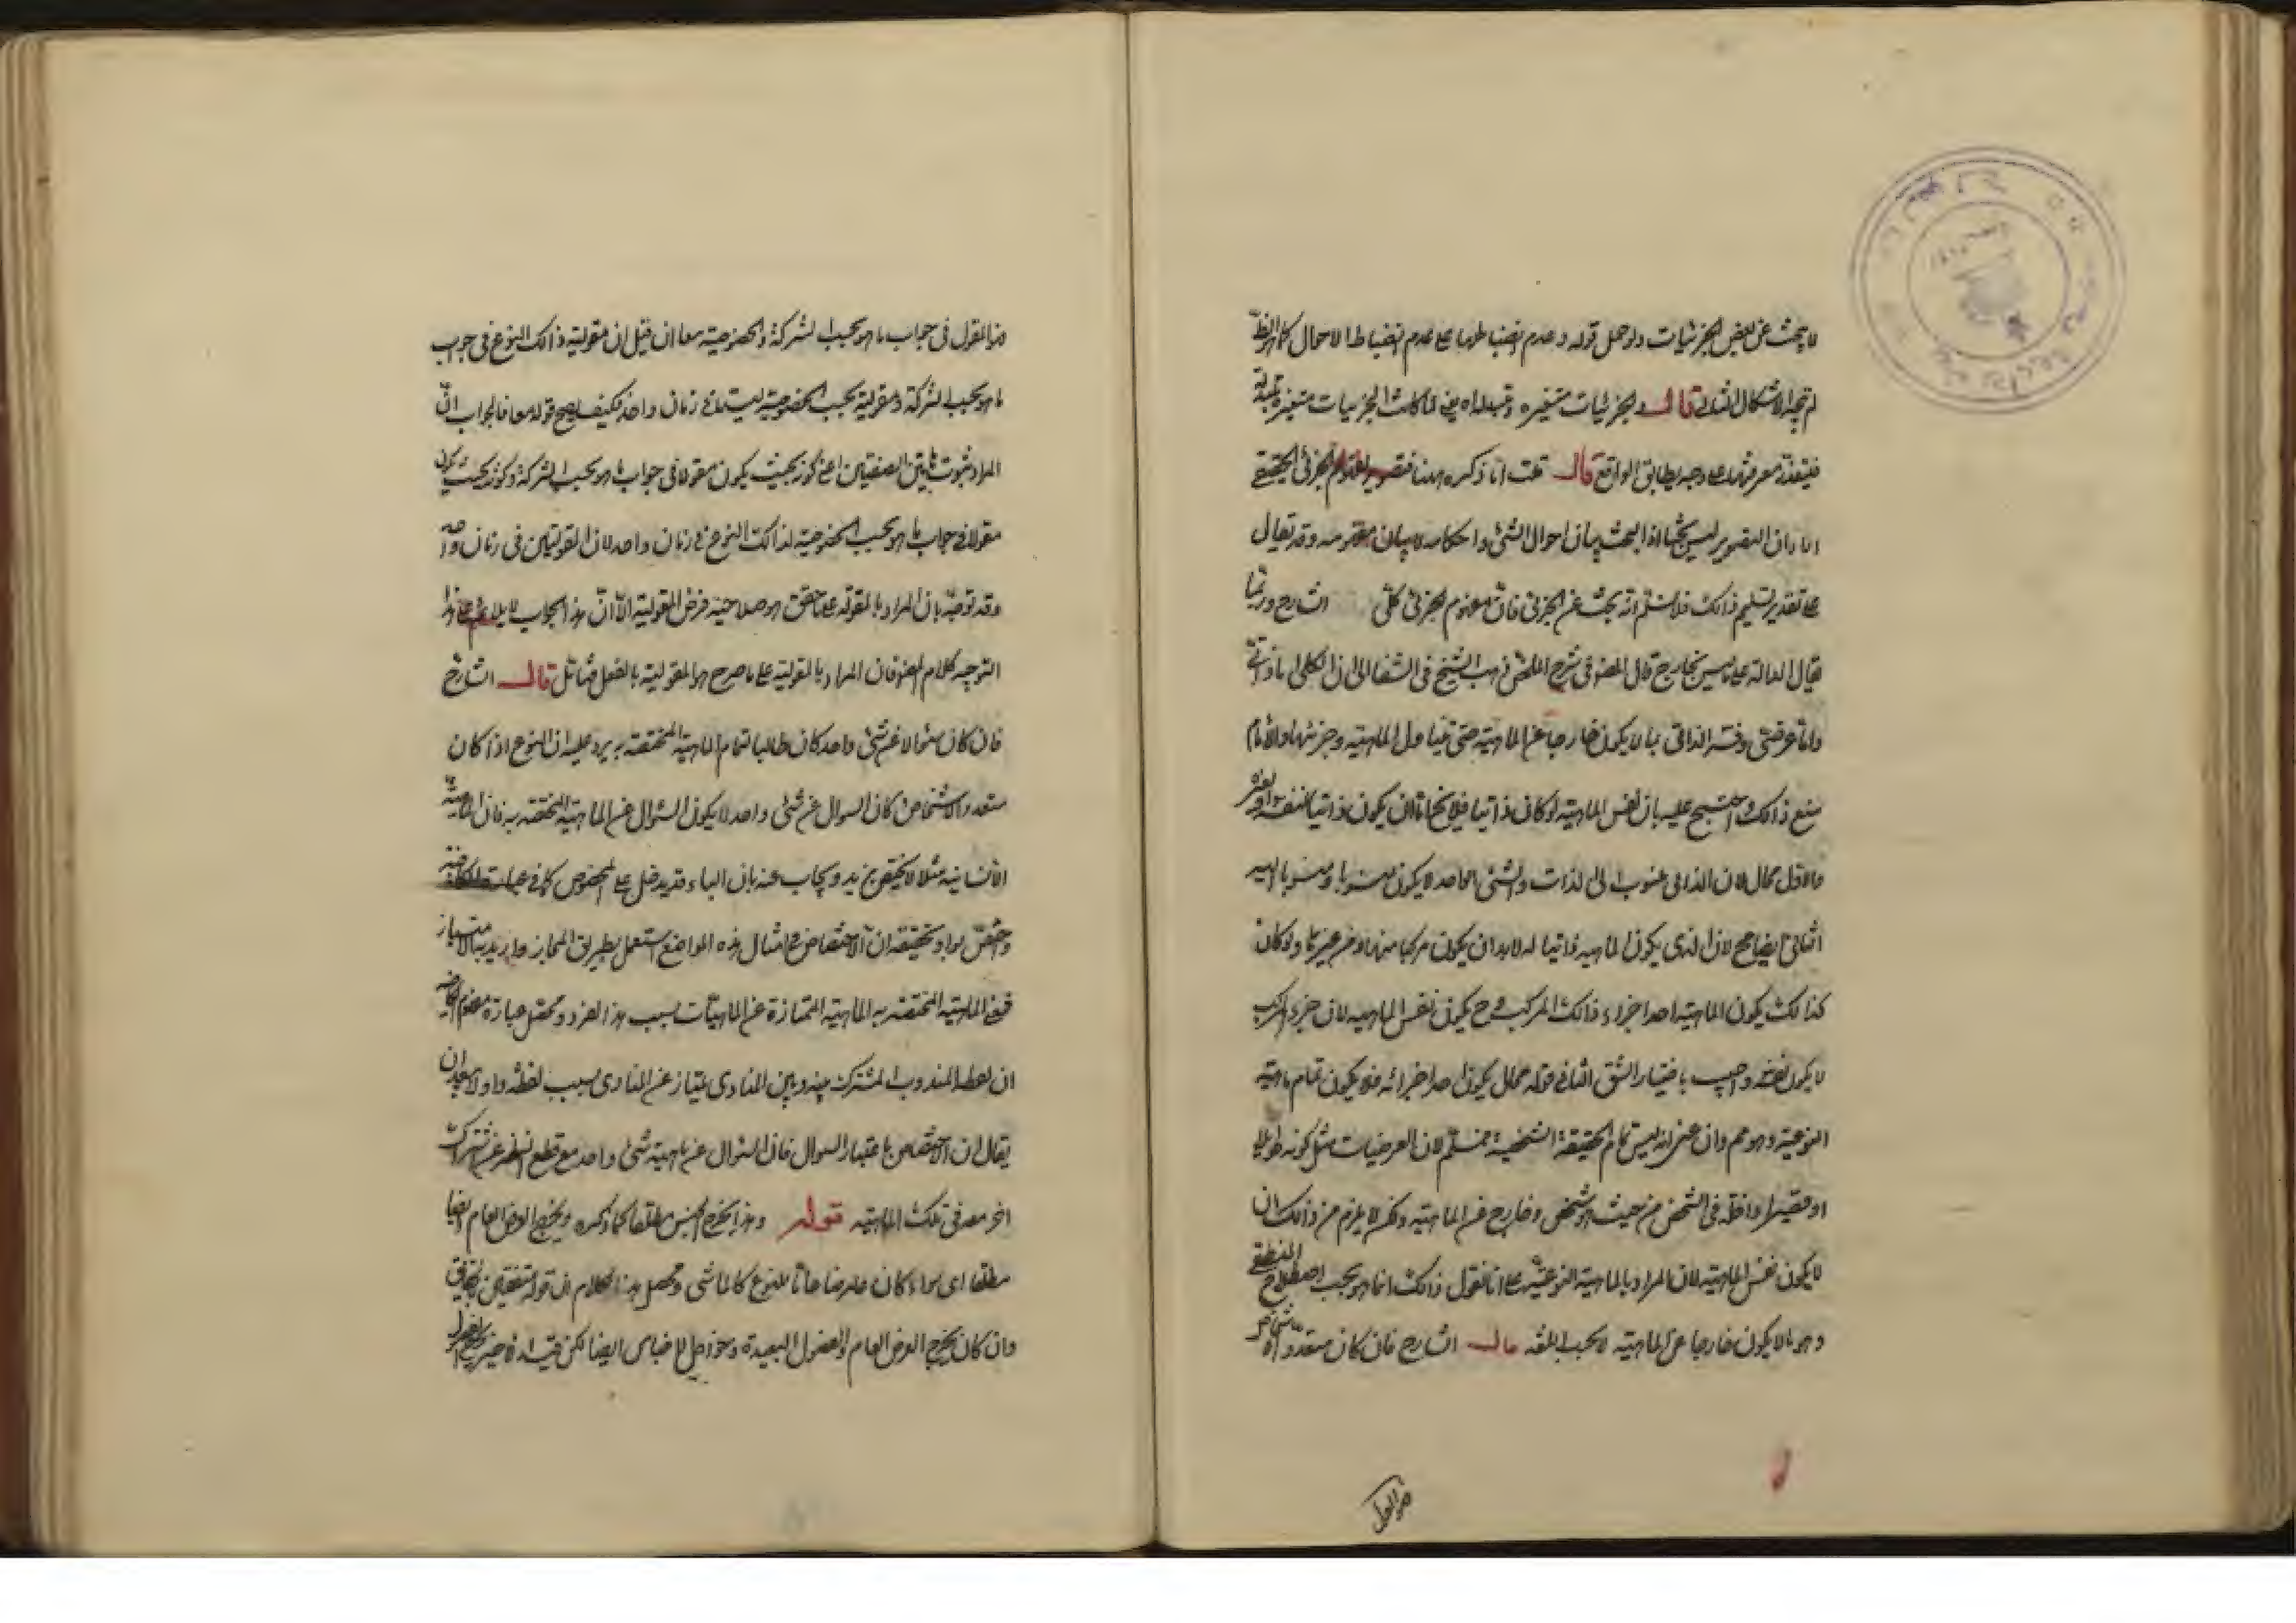 لا يبحث عن بعض الجزئيات ولو حمل قوله وعدم انضباطها على عدم انضباط الاحوال كما هو الظ
لم يتجه الاشكال الثانى قال والجزئيات متغيره وتبدله اه يعنى لما كانت الجزئيات متغيرة متبدلة
فيتعذر معرفتها على وجه يطابق الواقع قال قلت انا ذكره ههنا فتصوير لمفهوم الجزئى الحقيقى
اراد ان التصوير ليس بحثا اذ البحث بيان احوال الشئ واحكامه لا بيان مفهومه وقد يقال
على تقدير تسليم ذالك فلا نسلم انه بحث عن الجزئى فان مفهوم الجزئى كلى الشارح وربما
يقال الدالة على ما ليس بخارج قال المص فى شرح الملخص ذهب الشيخ فى الشفا الى ان الكلى اما ذاتى
واما عرضى وفسر الذاتى بما لا يكون خارجا عن الماهية حتى يتناول الماهية وجزئها والامام
منع ذالك واحتج عليه بان نفس الماهية لو كان ذاتيا فلا يخ اما ان يكون ذاتيا لنفسه او لغيره
والاول محال لان الذاتى منسوب الى الذات والشئ الواحد لا يكون منسوبا ومنسوبا اليه
الثانى ايضا مح لان الذى يكون الماهيه ذاتيا له لابد ان يكون مركبا منها ومن غيرها ولو كان
كذالك يكون الماهية احد اجزاء ذالك المركب وح يكون نفس الماهيه لان جزء المركب
لا يكون نفسه واجيب باختيار الشق الثانى قوله محال يكون احد اجزائه فلا يكون تمام ماهيته
النوعية وهو مم وان عنى انه ليس تمام الحقيقة الشخصية فمسلم لان العرضيات مثل كونه طويلا
او قصيرا داخلة فى الشخص من حيث هو شخص وخارج عن الماهية ولكن لا يلزم من ذالك ان
لا يكون نفس الماهية لان المراد بالماهية النوعية على انا نقول ذالك انما هو بحسب اصطلاح المنطقى
وهو ما لا يكون خارجا عن الماهية لا بحسب اللغه قال الشارح فان كان متعدد الاشخاص اه
هو المقول
هو المقول فى جواب ما هو بحسب الشركة والخصوصية معا ان قيل ان مقولية ذالك النوع فى جواب
ما هو بحسب الشركة ومقولية بحسب الخصوصية ليست فى زمان واحد فكيف يصح قوله معا فالجواب ان
المراد ثبوت هاتين الصفتين اعنى كونه بحيث يكون مقولا فى جواب ما هو بحسب الشركة وكونه بحيث يكون
مقولا فى جواب ما هو بحسب الخصوصية لذالك النوع فى زمان واحد لا ان المقوليتين فى زمان واحد
وقد توجه بان المراد بالمقولية على ما حقق هو صلاحية فرض المقولية الا ان هذا الجواب لا يلائم على هذا
التوجيه كلام المص فان المراد بالمقولية على ما صرح هو المقولية بالفعل فتأمل قال الشارح
فان كان سؤالا عن شئ واحد كان طالبا لتمام الماهية المختصة به يرد عليه ان النوع اذا كان
متعدد الاشخاص كان السوال عن شئ واحد لا يكون السؤال عن الماهية المختصة به فان الماهية
الانسانية مثلا لا يختص بزيد ويجاب عنه بان الباء قد يدخل على المخصوص كما فى
وخص بوا وتحقيقه ان الاختصاص فى امثال هذه المواضع يستعمل بطريق المجاز واريد به الامتياز
فمعنى الماهية المختصة به الماهية الممتازة عن الماهيات بسبب هذا الفرد ومحصل عبارة
ان لفظ المندوب المشترك بينه وبين المنادى يمتاز عن المنادى بسبب لفظه وا ولا يبعد ان
يقال ان الاختصاص باعتبار السوال فان السؤال عن ماهية شئ واحد مع قطع النظر عن اشتراك
اخر معه فى تلك الماهية قوله وهذا يخرج الجنس مطلقا كما ذكره ويخرج العرض العام ايضا
مطلقا اى سواء كان عارضا خاصا للنوع كالماشى ومحصل هذا الكلام ان قوله متفقين بالحقائق
وان كان يخرج العرض العام والفصول البعيدة وخواص الاجناس ايضا لكن